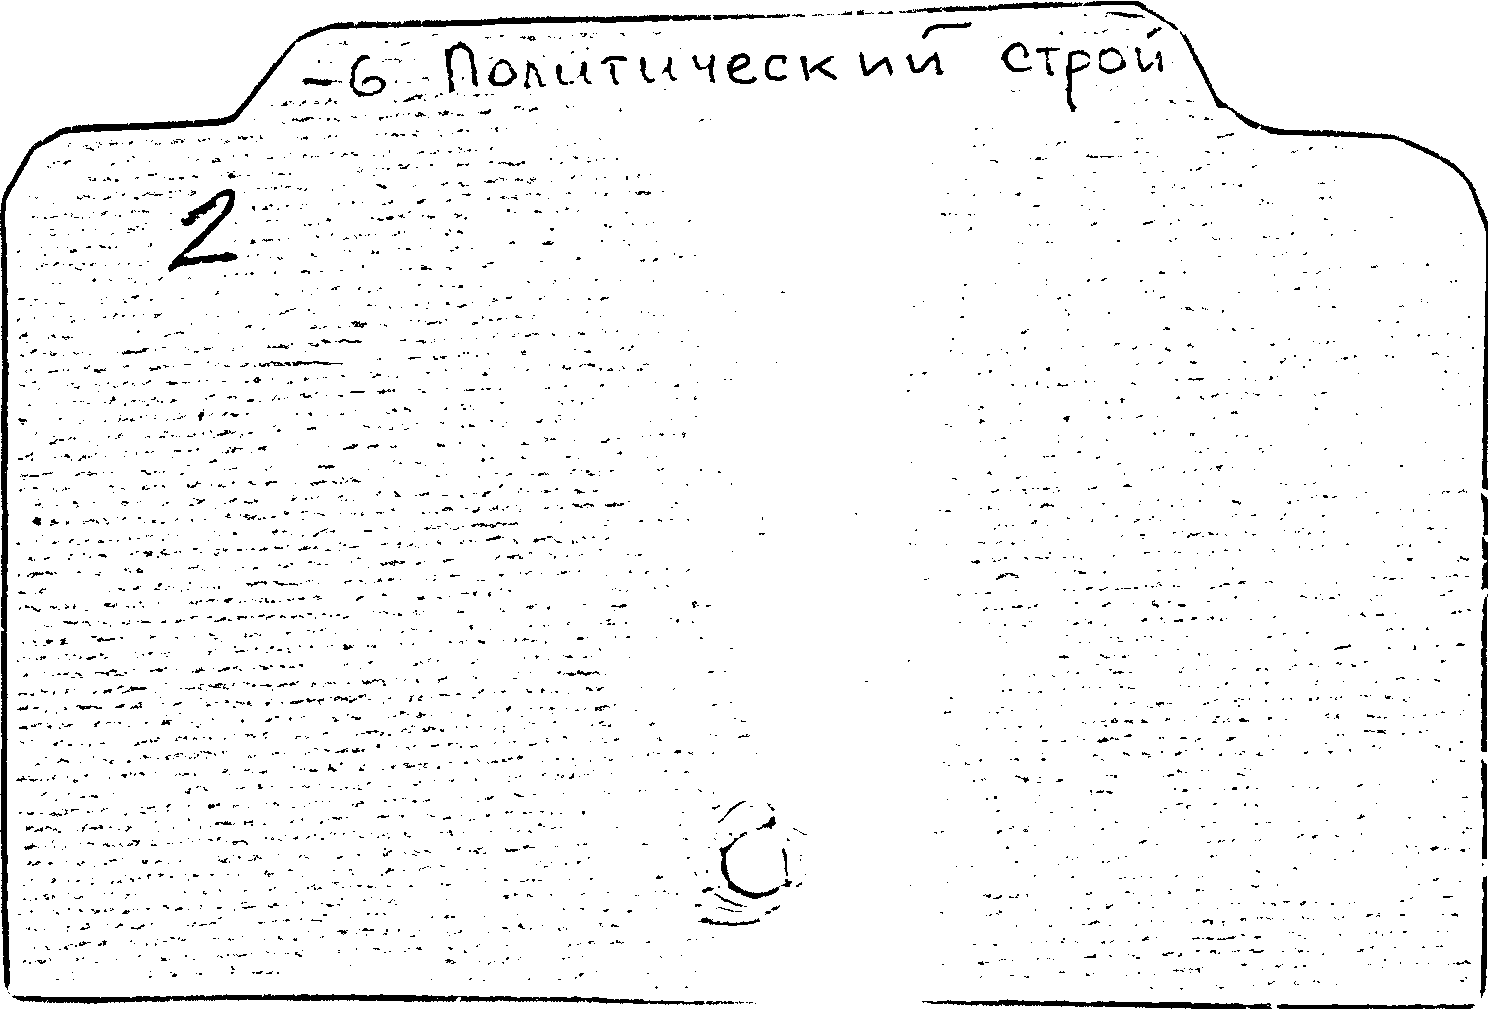 -6 Политический строй
2